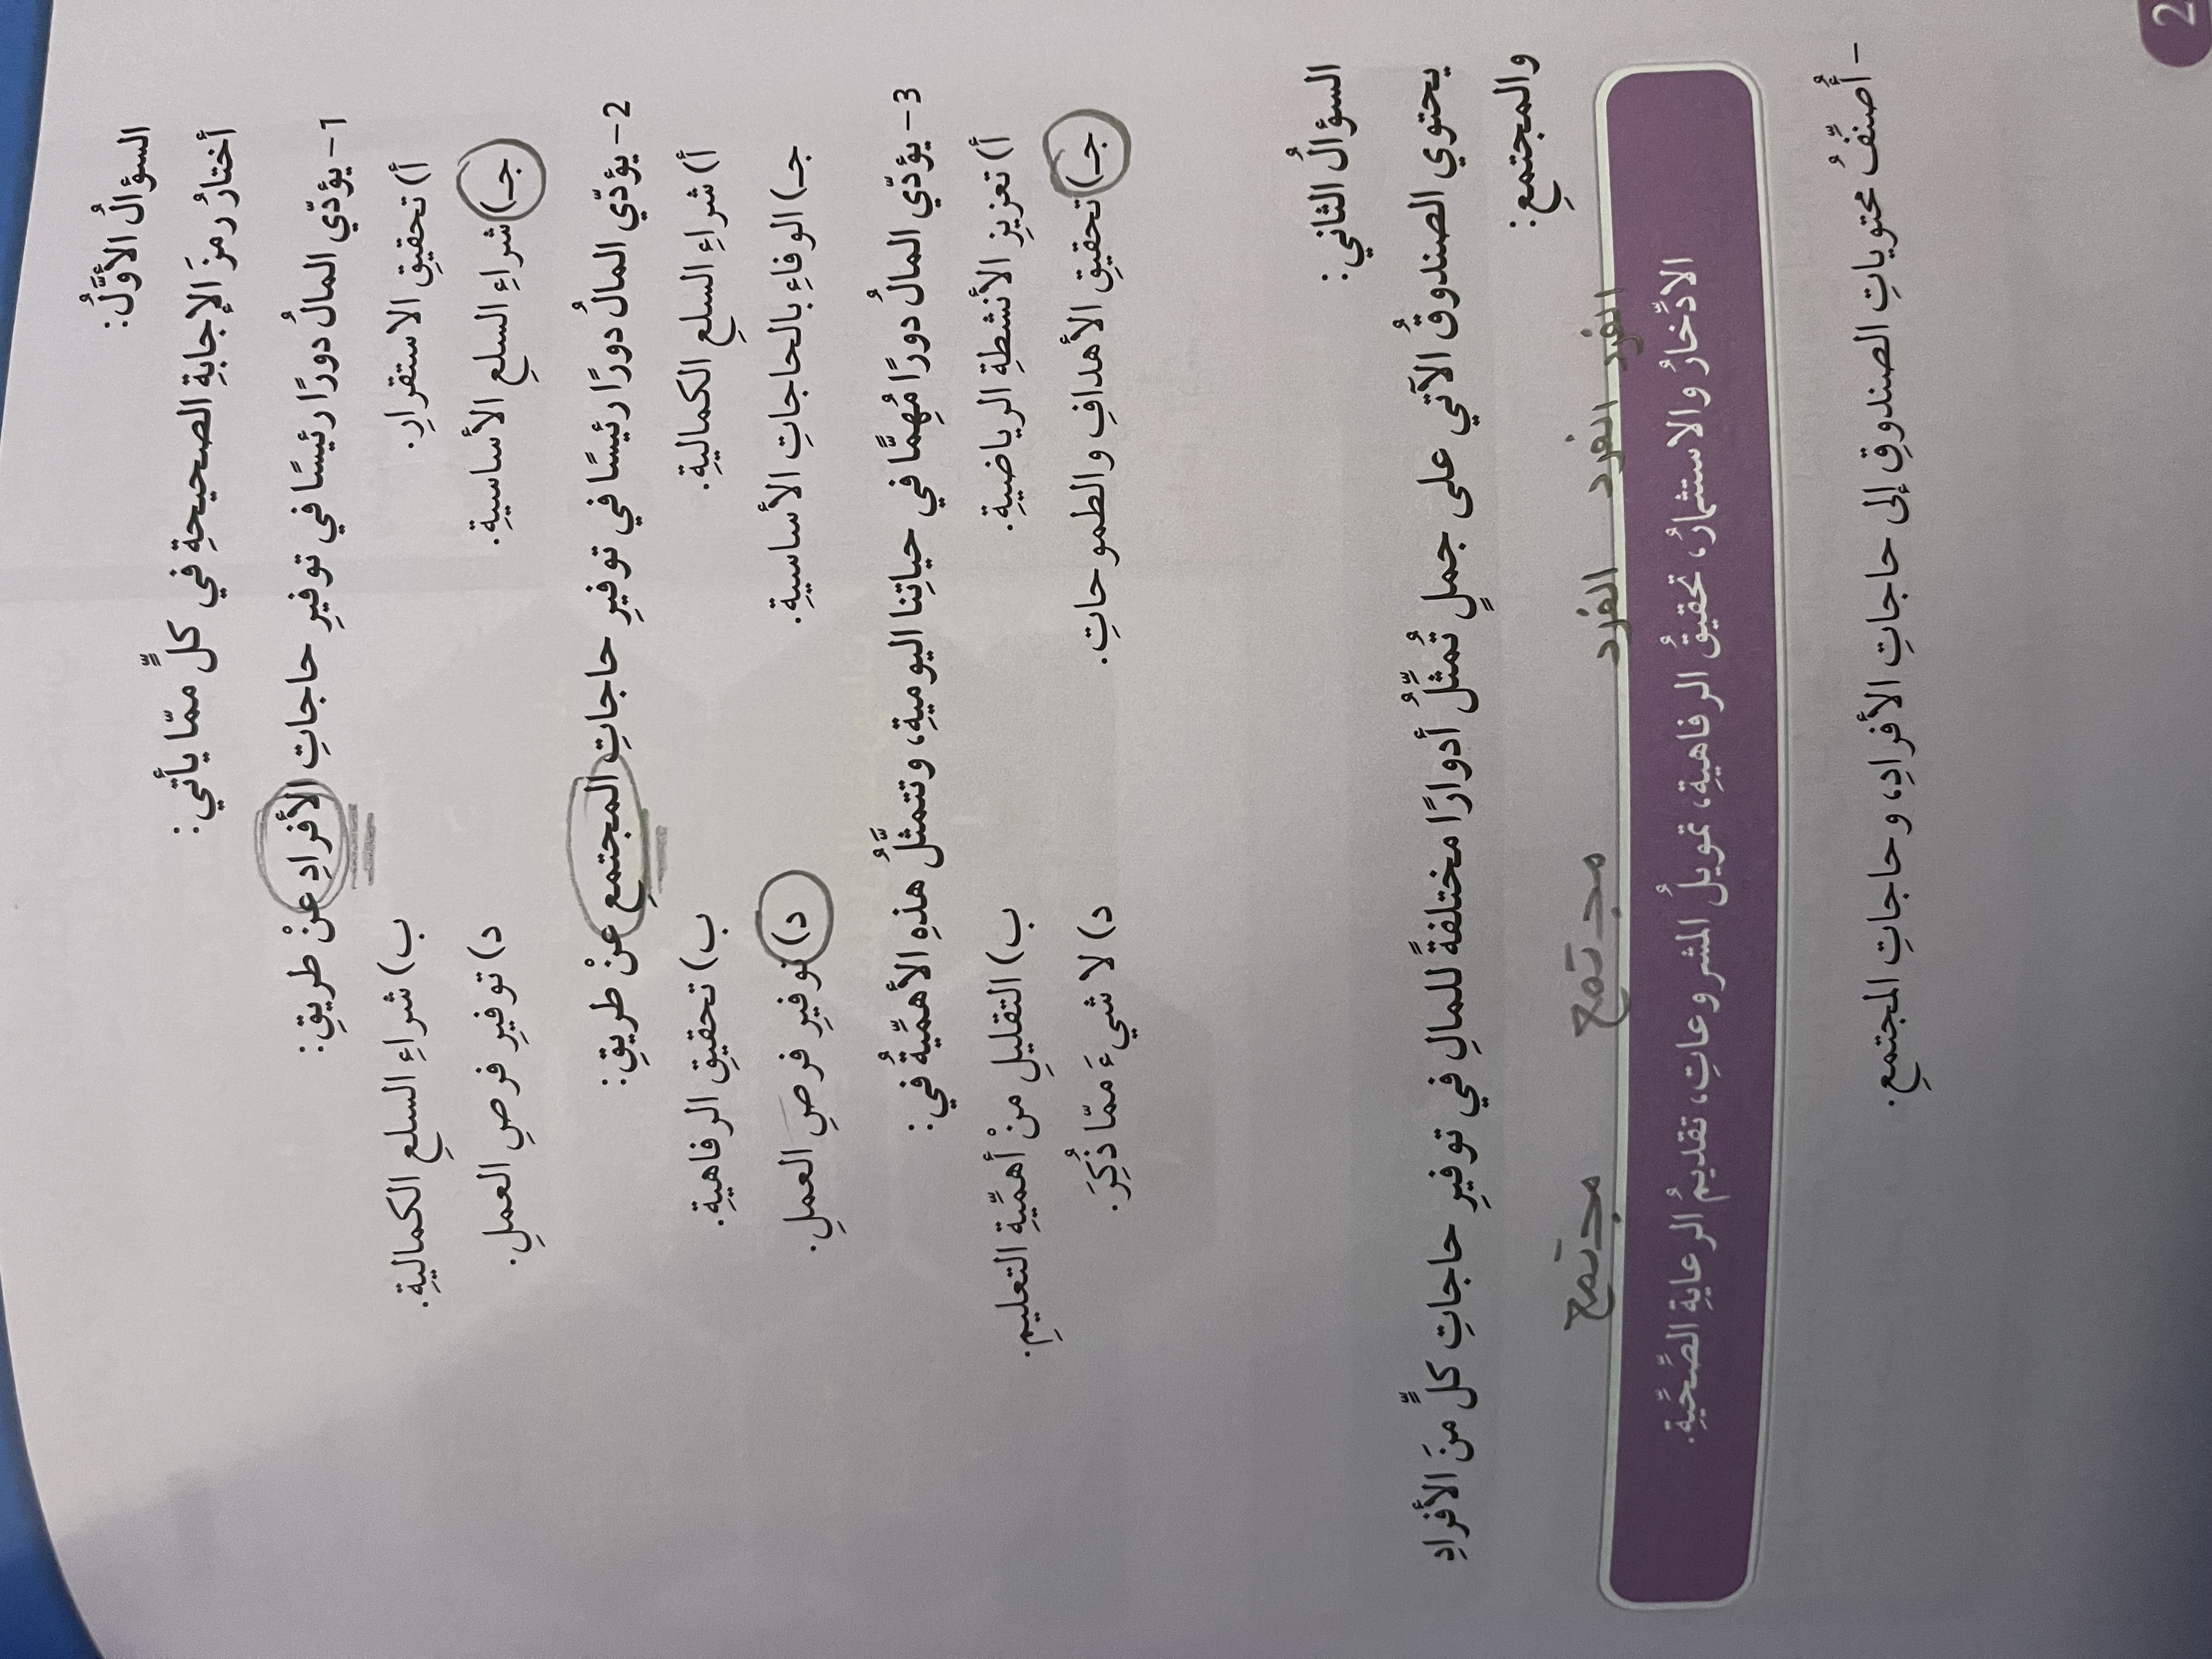 السؤالُ الأوَّلُ:
أختارُ رمزَ الإجابةِ الصحيحةِ في كلٍّ ممّا يأتي:
1- يؤدّي المالُ دورًا رئيسًا في توفيرِ حاجاتِ الأفرادِ عنْ طريقِ:
أ) تحقيقِ الاستقرارِ. ب) شراءِ السلعِ الكماليةِ.
جـ) شراءِ السلعِ الأساسيةِ. د) توفيرِ فرصِ العملِ.
2- يؤدّي المالُ دورًا رئيسًا في توفيرِ حاجاتِ المجتمعِ عنْ طريقِ:
أ) شراءِ السلعِ الكماليةِ. ب) تحقيقِ الرفاهيةِ.
جـ) الوفاءِ بالحاجاتِ الأساسيةِ. د) توفيرِ فرصِ العملِ.
3- يؤدّي المالُ دورًا مُهِمًّا في حياتِنا اليوميةِ، وتتمثَّلُ هذهِ الأهمِّيَّةُ في:
أ) تعزيزِ الأنشطةِ الرياضيةِ. ب) التقليلِ منْ أهمِّيَّةِ التعليمِ.
جـ) تحقيقِ الأهدافِ والطموحاتِ. د) لا شيءَ ممّا ذُكِرَ.
السؤالُ الثاني:
يحتوي الصندوقُ الآتي على جملٍ تُمثِّلُ أدوارًا مختلفةً للمالِ في توفيرِ حاجاتِ كلٍّ منَ الأفرادِ
والمجتمعِ:
الفرد الفرد الفرد مجتمع مجتمع
الادِّخارُ والاستثمارُ، تحقيقُ الرفاهيةِ، تمويلُ المشروعاتِ، تقديمُ الرعايةِ الصِّحِّيَّةِ.
- أُصنِّفُ محتوياتِ الصندوقِ إلى حاجاتِ الأفرادِ، وحاجاتِ المجتمعِ.
2